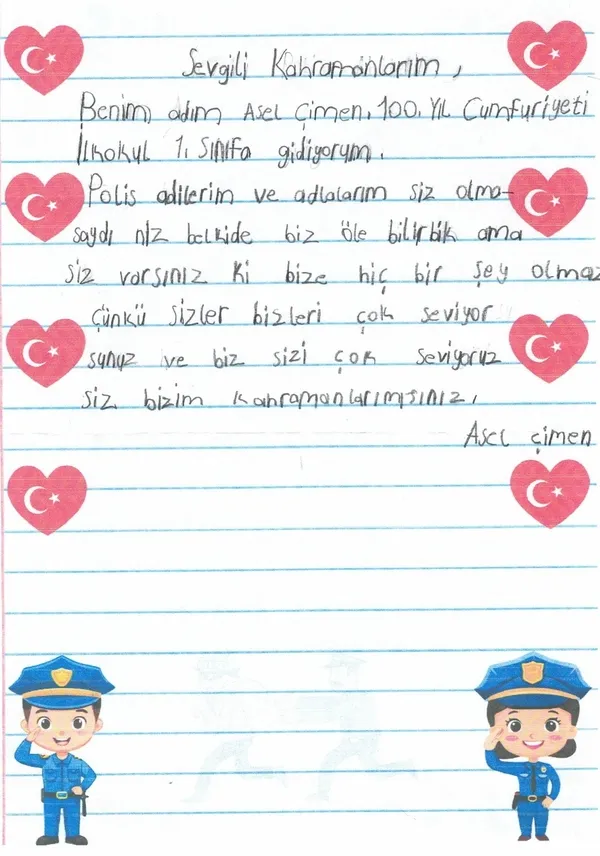 Sevgili Kahramanlarım,
Benim adım Asel Çimen. 100. Yıl Cumfuriyeti
İlkokul 1. Sınıfa gidiyorum.
Polis adilerim ve adlalarım siz olma-
saydı nız belkide biz öle bilirbik ama
siz varsınız ki bize hiç bir şey olmaz
Çünkü sizler bizleri çok seviyor
sunuz ve biz sizi çok seviyoruz
siz bizim kahramanlarımısınız.
Asel çimen